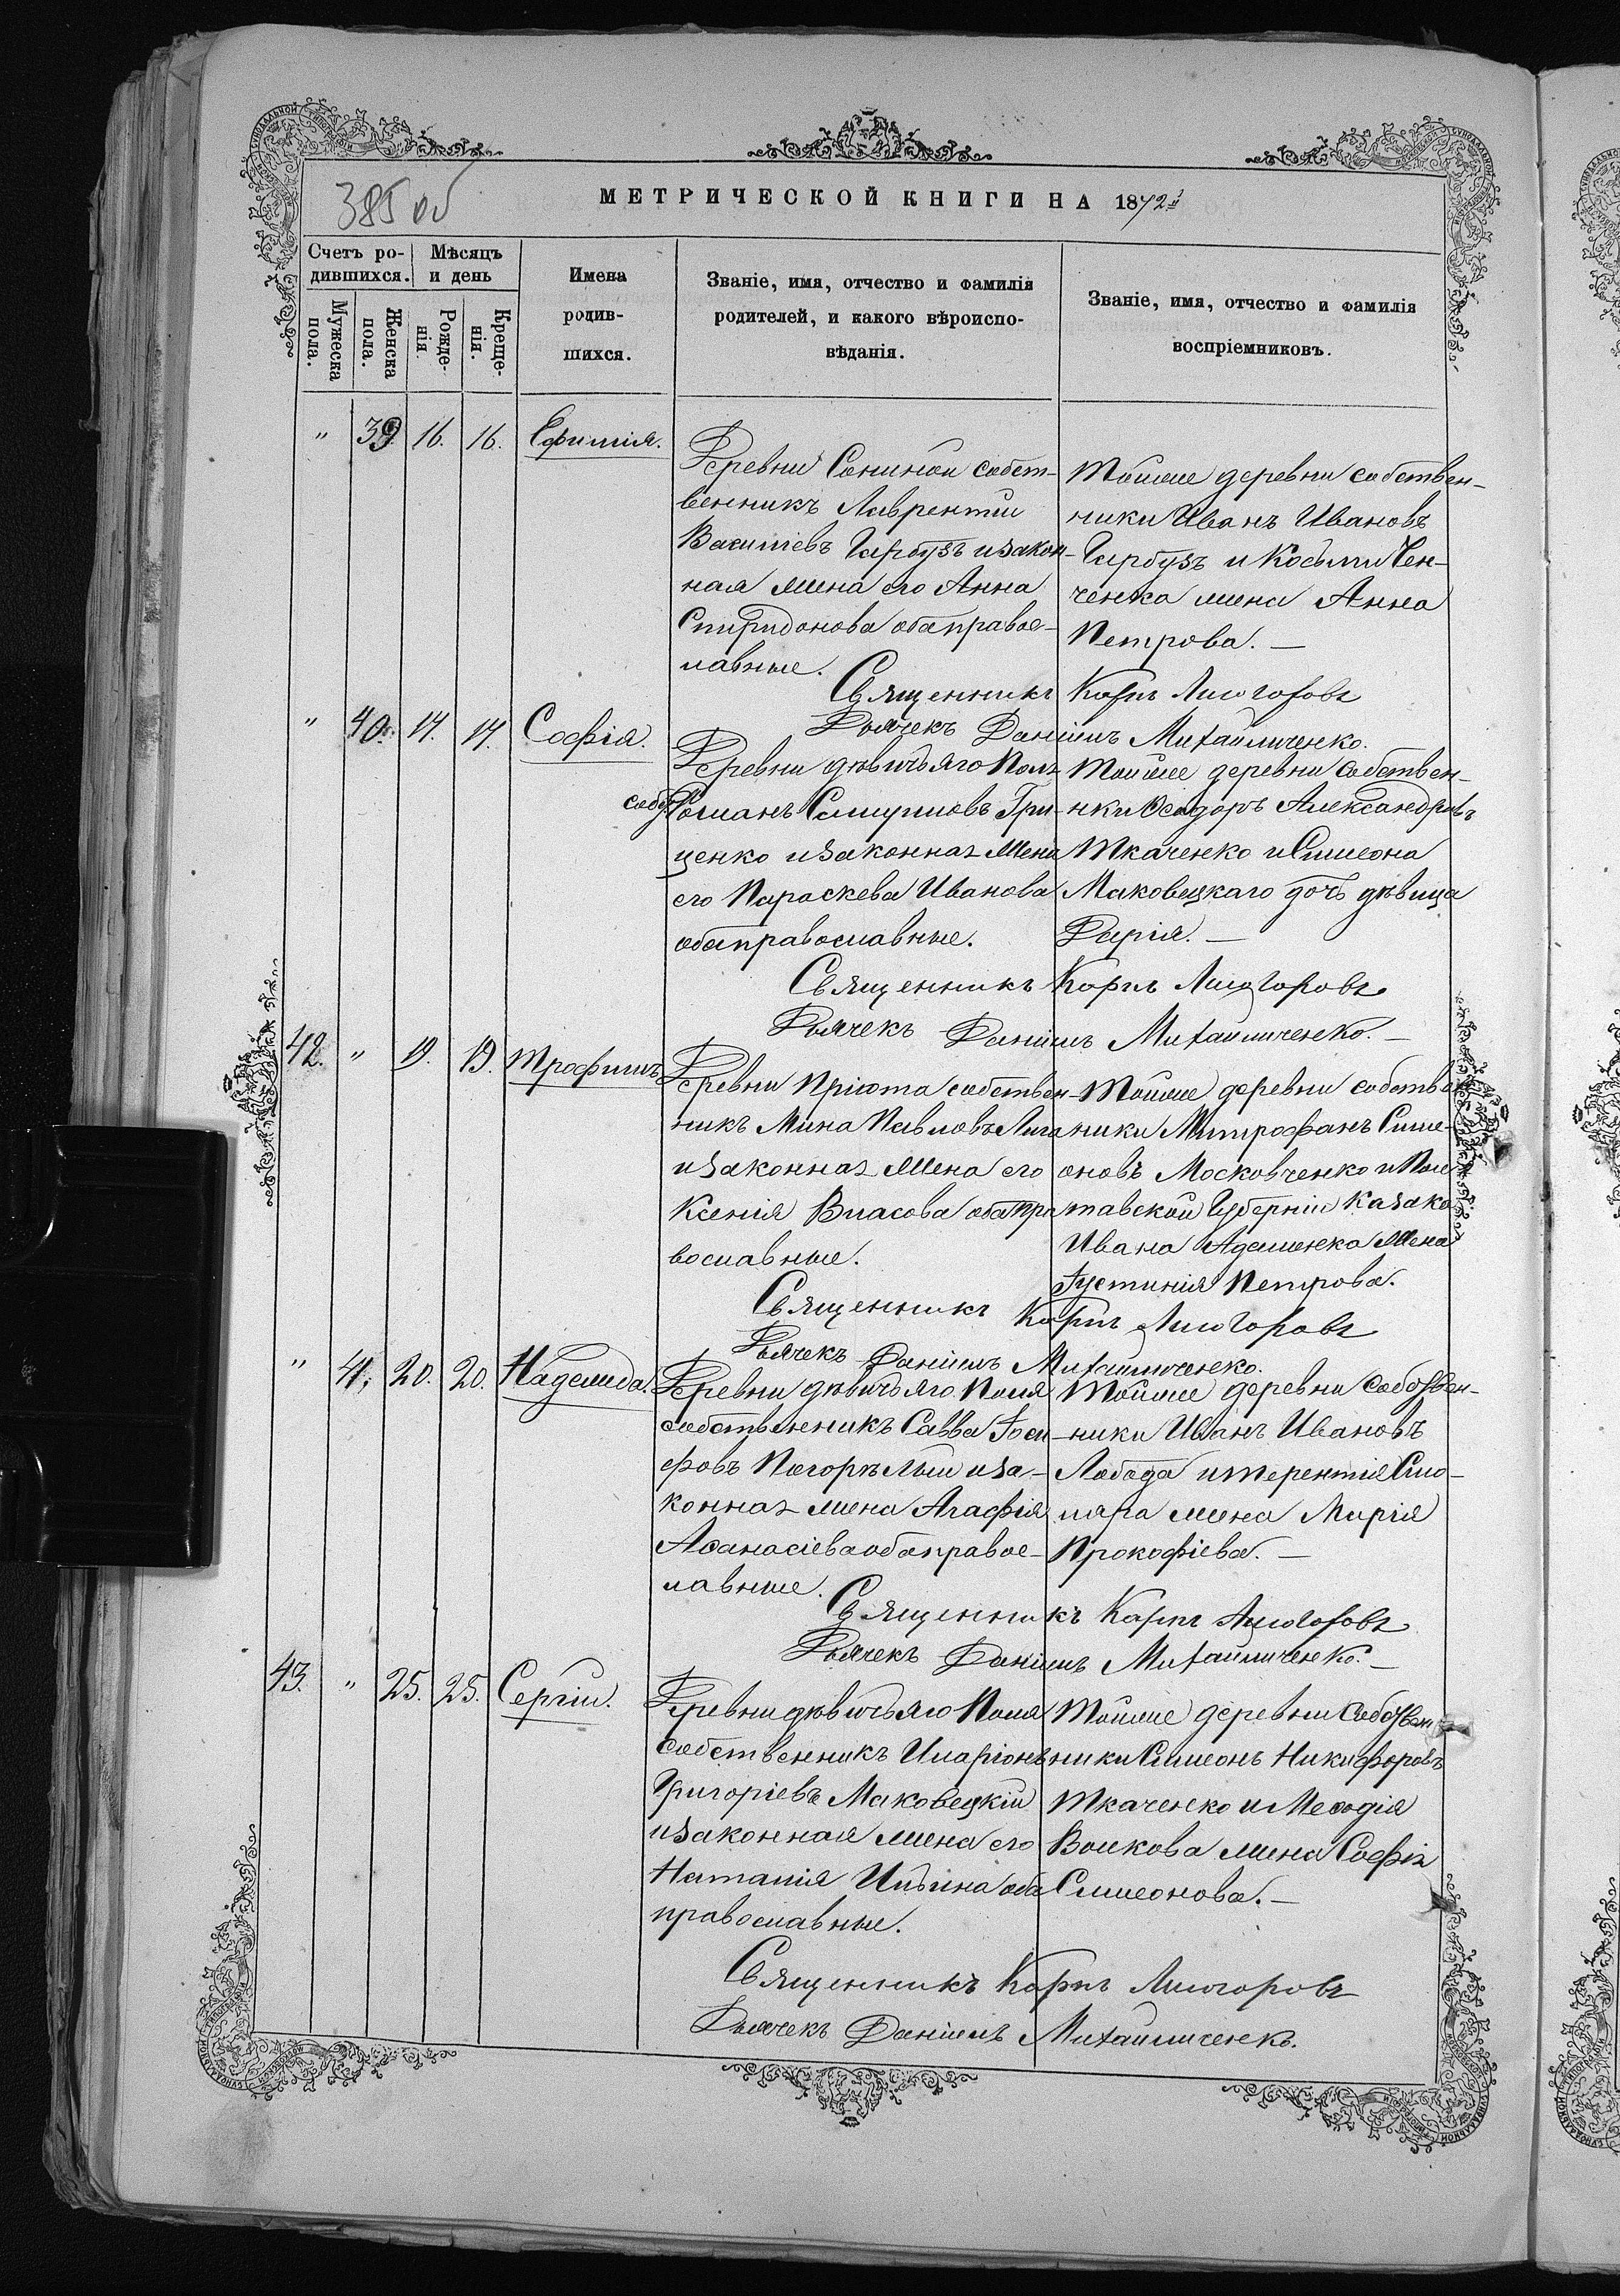 385 об
МЕТРИЧЕСКОЙ КНИГИ НА 1872й
Счетъ ро-
дившихся.
Мѣсяцъ
и день
Мужеска
пола.
Женска
пола.
Рожде-
нія.
Креще-
нія.
Имена
родив-
шихся.
Званіе, имя, отчество и фамилія
родителей, и какого вѣроиспо-
вѣданія.
Званіе, имя, отчество и фамилія
воспріемниковъ.
" 39. 16. 16. Ефимія.
Деревни Сониной собст-
венникъ Лаврентій
Василіевъ Гарбузъ и закон-
ная жена его Анна
Спиридонова оба правос-
лавные.
Тойже деревни собствен-
ники Иванъ Ивановъ
Гарбузъ и Косьми Чен-
ченка жена Анна
Петрова. —
Священникъ Карпъ Лисогоровъ
Дьячекъ Даніилъ Михайличенко.
" 40. 17. 17. Софія.
Деревни дѣвичьяго Поля
собс. Романъ Самуиловъ Гри-
ценко и законная жена
его Параскева Иванова
оба православные.
Тойже деревни собствен-
нки Ѳеодоръ Александровъ
Ткаченко и Симеона
Маковецкаго дочь дѣвица
Дарія. —
Священникъ Карпъ Лисогоровъ
Дьячекъ Даніилъ Михайличенко. —
42. " 19. 19. Трофимъ
Деревни Пріюта собствен-
никъ Мина Павловъ Лига
и законная жена его
Ксенія Власова оба пра
вославные.
Тойже деревни собстве
ники Митрофанъ Симе-
оновъ Московченко и Пол
тавской Губерніи казака
Ивана Адаменка жена
Іустинія Петрова.
Священникъ Карпъ Лисогоровъ
Дьячекъ Даніилъ Михайличенко.
" 41. 20. 20. Надежда.
Деревни дѣвичьяго Поля
собственникъ Савва Іоси-
фовъ Погорѣлый и за-
конная жена Агафія
Аѳанасіева оба правос-
лавные.
Тойже деревни Собствен-
ники Иванъ Ивановъ
Лобода и Терентія Сто-
ляра жена Марія
Прокофіева. —
Священникъ Карпъ Лисогоровъ
Дьячекъ Даніилъ Михайличенко. —
43. " 25. 25. Сергій.
Деревни дѣвичьяго Поля
собственникъ Иларіонъ
Григоріевъ Маковецкій
и законная жена его
Наталія Ильина оба
православные.
Тойже деревни Собствен
ники Симеонъ Никифоровъ
Ткаченко и Меѳодія
Волкова жена Софія
Симеонова. —
Священникъ Карпъ Лисогоровъ
Дьячекъ Даніилъ Михайличенко.